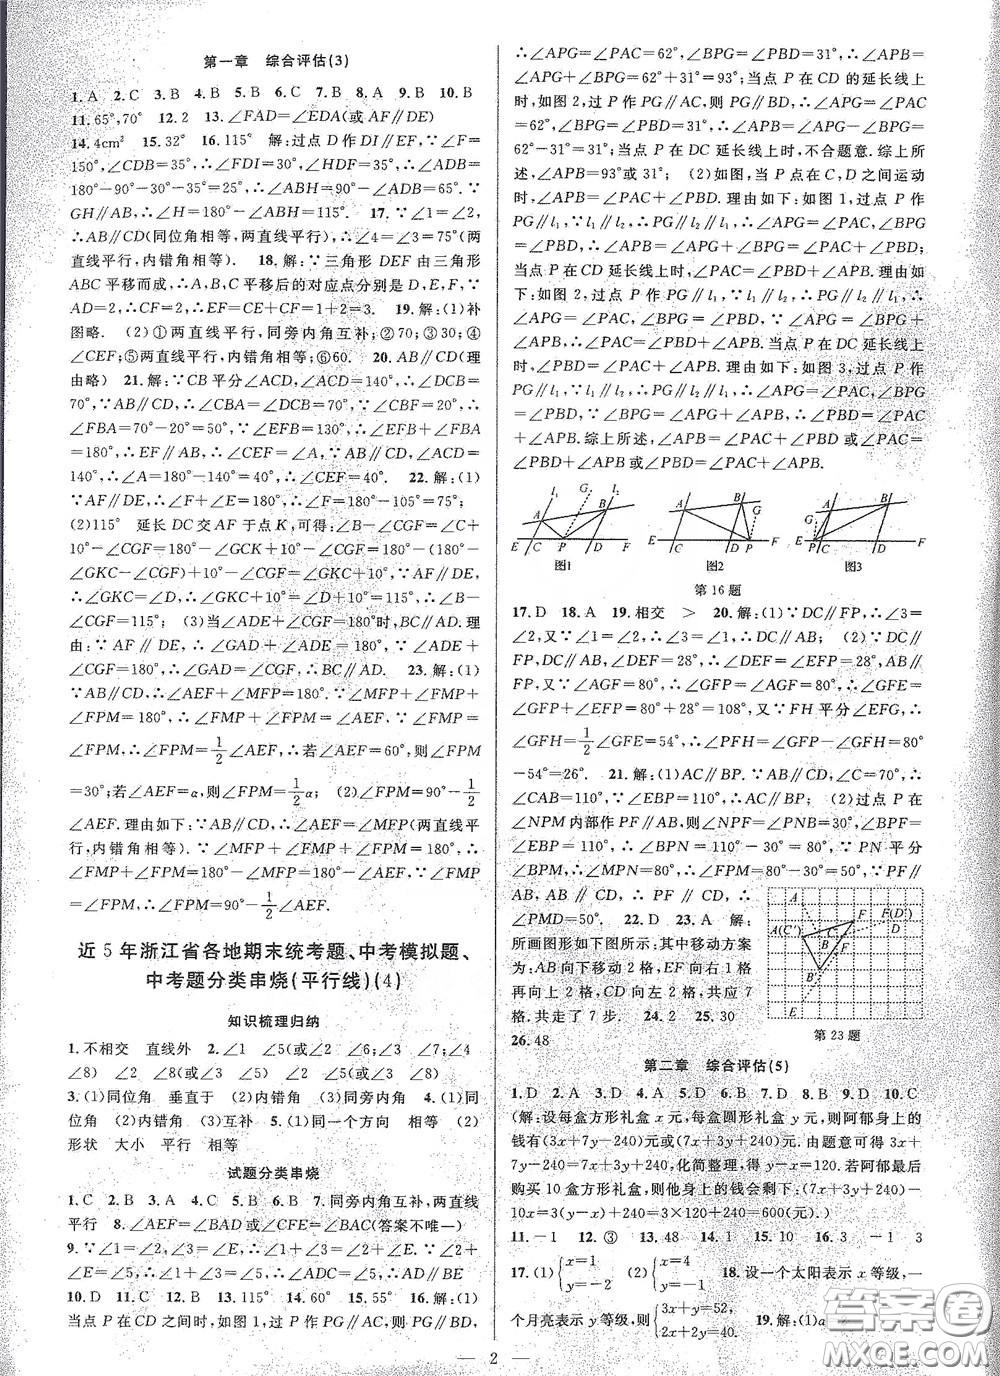 第一章　综合评估(3)
1. A　2. C　3. B　4. B　5. B　6. C　7. B　8. B　9. B　10. B
11. 65°,70°　12. 2　13. ∠FAD=∠EDA(或∠DAC
14. 4cm²　15. 32°　16. 115°　解:过点 D 作 DI∥EF,∵∠F=
150°,∠CDB=35°,∴∠FDI=30°,∠HDF=35°,∴∠ADB=
180°-90°-30°-35°=25°,∴∠ABH=90°-∠ADB=65°.∵
GH∥AB,∴∠H=180°-∠ABH=115°.　17. ∵∠1=∠2,
∴AB∥CD(同位角相等,两直线平行),∴∠4=∠3=75°(两直线
平行,内错角相等).　18. 解:∵三角形 DEF 由三角形
ABC 平移而成,∴A、B、C 平移后的对应点分别是 D、E、F,∴BE=
AD=2,∴CF=2,∴EF=CE+CF=1+2=3.　19. 解:(1)补
图略.　(2)①两直线平行,同旁内角互补;②70;③30;④
∠CEF;⑤两直线平行,内错角相等;⑥60.　20. AB∥CD(理
由略)　21. 解:∵CB 平分∠ACD,∠ACD=140°,∴∠DCB=
70°.∵AB∥CD,∴∠CBA=∠DCB=70°.∵∠CBF=20°,∴
∠FBA=70°-20°=50°.∵∠EFB=130°,∴∠EFB+∠FBA
=180°,∴EF∥AB,∴∠CEF=∠A.∵AB∥CD,∠ACD=
140°,∴∠A=180°-140°=40°,∴∠CEF=40°.　22. 解:(1)
∵AF∥DE,∴∠F+∠E=180°,∴∠F=180°-105°=75°;
(2)115°　延长 DC 交 AF 于点 K,可得:∠B-∠CGF=∠C+
10°-∠CGF=180°-∠GCK+10°-∠CGF=180°-(180°-
∠GKC-∠CGF)+10°-∠CGF=∠GKC+10°=∠D+10°
=115°;　(3)当∠ADE+∠CGF=180°时,BC∥AD.理
由:∵AF∥DE,∴∠GAD+∠ADE=180°.∵∠ADE+
∠CGF=180°,∴∠GAD=∠CGF,∴BC∥AD.　23. 解:(1)
∵AB∥CD,∴∠AEF+∠MFP=180°.∵∠MFP+∠FMP+
∠FPM=180°,∴∠FMP+∠FPM=∠AEF.∵∠FMP=
∠FPM,∴∠FPM=1/2∠AEF,∴若∠AEF=60°,则∠FPM
=30°;若∠AEF=α,则∠FPM=1/2α;　(2)∠FPM=90°-1/2
∠AEF.理由如下:∵AB∥CD,∴∠AEF=∠MFP(两直线平行,
内错角相等).∵∠MFP+∠FMP+∠FPM=180°,∠FMP=
∠FPM,∴∠FPM=90°-1/2∠AEF.
近 5 年浙江省各地期末统考题、中考模拟题、
中考题分类串烧(平行线)(4)
知识梳理归纳
1. 不相交　直线外　2. ∠1　∠5(或∠2
3. (1)同位角　垂直于　(2)内错角　(3)互补　4. (1)同位角
(2)内错角　(3)同旁内角　5. (1)一致　相等　(2)
形状　大小　平行　相等
试题分类串烧
1. C　2. B　3. A　4. C　5. B　6. B　7. 同旁内角互补,两直线
平行　8. ∠AEF=∠BAD或∠CFE=∠BAC(答案不唯一)
9. ∵∠1=∠2,∠2=∠E,∴∠1=∠E,
10. D　11. B　12. B　13. 115°　14. 60°　15. 55°　16. 解:(1)
当点 P 在 CD 之间时,如图1,过 P 作 PG∥AC,则 PG∥BD,
∴∠APG=∠PAC=62°,∠BPG=∠PBD=31°,∴∠APB=
∠APG+∠BPG=62°+31°=93°;当点 P 在 CD 的延长线上
时,如图2,过 P 作 PG∥AC,则 PG∥BD,∴∠APG=∠PAC=
62°,∠BPG=∠PBD=31°,∴∠APB=∠APG-∠BPG=62°
-31°=31°;当点 P 在 DC 的延长线上时,不合题意.综上所
述,∠APB=93°或31°.　(2)如图1,当 P 在 C、D 之间运动
时,∠APB=∠PAC+∠PBD.理由如下:如图1,过点 P 作
PG∥l₁,∵l₁∥l₂,∴PG∥l₂∥l₁,∴∠APG=∠PAC,∠BPG
=∠PBD,∴∠APB=∠APG+∠BPG=∠PAC+∠PBD;如图2,当
点 P 在 CD 延长线上时,∠APB=∠PAC-∠PBD.理由如下:
如图2,过点 P 作 PG∥l₁,∵l₁∥l₂,∴PG∥l₂∥l₁,∴
∠APG=∠PAC,∠BPG=∠PBD,∴∠APB=∠APG-
∠BPG=∠PAC-∠PBD;如图3,当点 P 在 DC 延长线上时,
∠APB=∠PBD-∠PAC.理由如下:如图3,过点 P 作
PG∥l₁,∵l₁∥l₂,∴PG∥l₂∥l₁,∴∠APG=∠PAC,∠BPG
=∠PBD,∴∠APB=∠BPG-∠APG=∠PBD-∠PAC
+∠APB.综上所述,∠APB=∠PAC+∠PBD或∠PAC=
∠PBD+∠APB或∠PBD=∠PAC+∠APB.
图1
图2
图3
第16题
17. D　18. A　19. 相交　>　20. 解:(1)∵DC∥FP,∴∠3=
∠2,又∵∠1=∠2,∴∠3=∠1,∴DC∥AB;　(2)∵DC∥FP,
DC∥AB,∠DEF=28°,∴∠DEF=∠EFP=28°,AB∥FP,
又∵∠AGF=80°,∴∠GFP=∠AGF=80°,∴∠GFE=
∠GFP+∠EFP=80°+28°=108°,又∵FH 平分∠EFG,∴
∠GFH=1/2∠GFE=54°,∴∠PFH=∠GFP-∠GFH=80°
-54°=26°.　21. 解:(1)AC∥BP.∵AB∥CD,∠C=70°,∴
∠CAB=110°=∠EBP,∴AC∥BP;　(2)过点 P 在
∠NPM 内部作 PF∥AB,∴∠FPN=∠PNB=30°,∠BPF=
∠EBP=110°,∴∠BPN=80°.∵PN 平分
∠BPM,∴∠MPN=80°,∴∠FPM=50°.∵PF∥
AB,AB∥CD,∴PF∥CD,∴∠FPM=
∠PMD=50°.　22. A　23. A　解:
图所示,平移其中两条线段,
方法是将 AB 向下 2
格,CD 向左 2 格,EF 向右 2
格,共走了 7 步.　24. 2　25. 30
26. 48
A
A(C')
F(D')
B
第23题
第二章　综合评估(5)
1. D　2. A　3. A　4. C　5. D　6. B　7. D　8. D　9. D　10. C
(解:设每盒方形礼盒 x 元,每盒圆形礼盒 y 元,则阿郁身上的
钱有(3x+7y-240)元或(7x+3y+240)元.由题意可得 3x+
7y-240=7x+3y+240,化简整理得:y-x=120.若阿郁最后
购买 10 盒方形礼盒,则她身上的钱会剩下:(7x+3y+240)
-10x=3(y-x)+240=3×120+240=600(元).)
11. -1　12. ③　13. 48　14. 1　15. 10　16. 3　-1　3
17. (1){x=1 y=-2　(2){x=4 y=-1　18. 设一个太阳表示 x 等级,一
个月亮表示 y 等级,则{3x+y=52, 2x+2y=40.　19. 解:(1)
2
答案圈
MXQE.COM